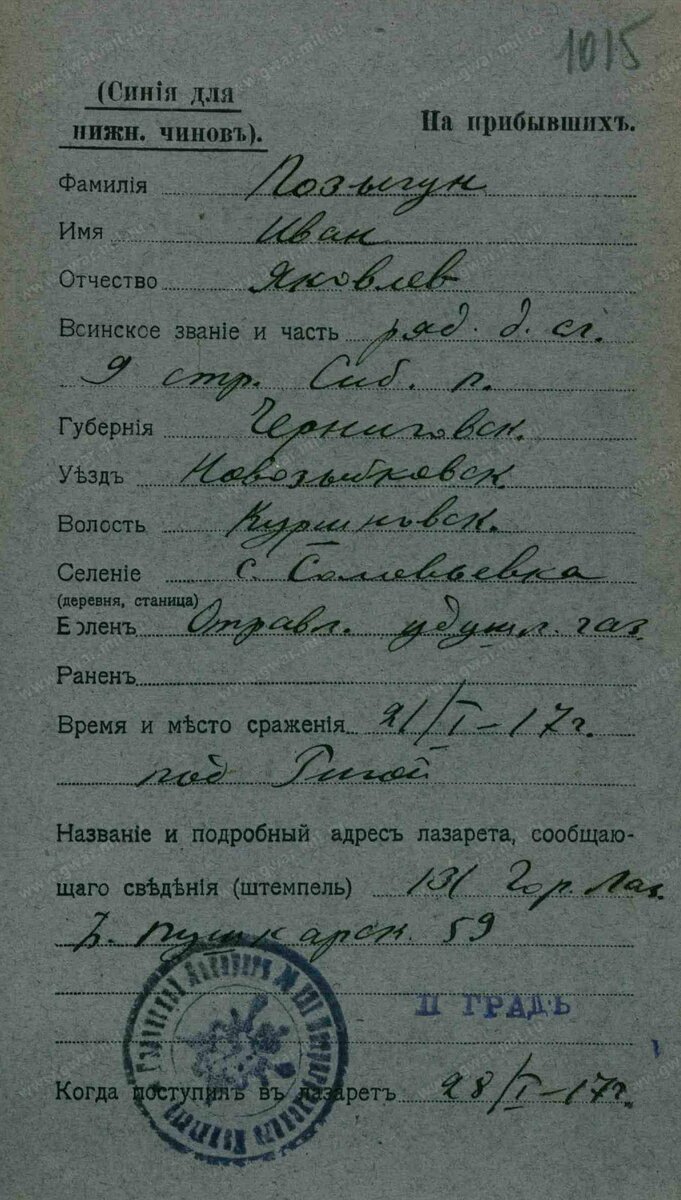 1015
(Синія для
нижн. чиновъ).
На прибывшихъ.
Фамилія Позыгун
Имя Иван
Отчество Яковлев
Воинское званіе и часть ряд. д. сл.
9 стр. Сиб. п.
Губернія Черниговск.
Уѣздъ Новозыбковск.
Волость
Селеніе с. Соловьевка
(деревня, станица)
Боленъ Отравл. удушл. газ.
Раненъ
Время и мѣсто сраженія 21/I-17г.
под Ригой
Названіе и подробный адресъ лазарета, сообщаю-
щаго свѣдѣнія (штемпель) 131 Гор. Лаз.
Б. Пушкарск. 59
П ГРАДЪ
Когда поступилъ въ лазаретъ 28/I-17г.
www.gwar.mil.ru